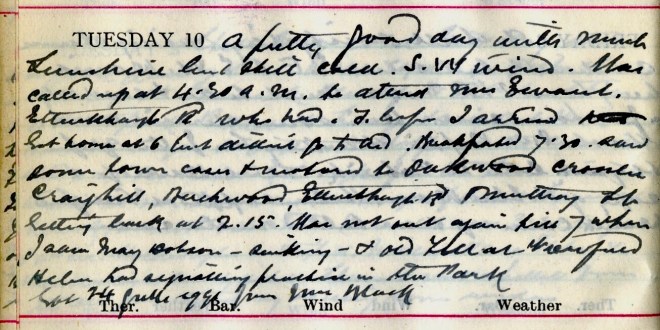 TUESDAY 10 A pretty good day with much
Sunshine but still cold. S.W wind. Was
called up at 4.30 a.m. to attend Mrs Ewart.
Ettrickhaugh Rd who had before I arrived
Got home at 6 but didn't go to bed. Breakfasted 7.30. saw
some town cases & motored to Oakwood
Craighill, Ettrickhaugh Rd
Getting back at 2.15. Was not out again till 7 when
I saw May Dobson - sinking - & old
Helen had signalling practice in the Park
Got 24 from Mrs Black
Ther. Bar. Wind Weather